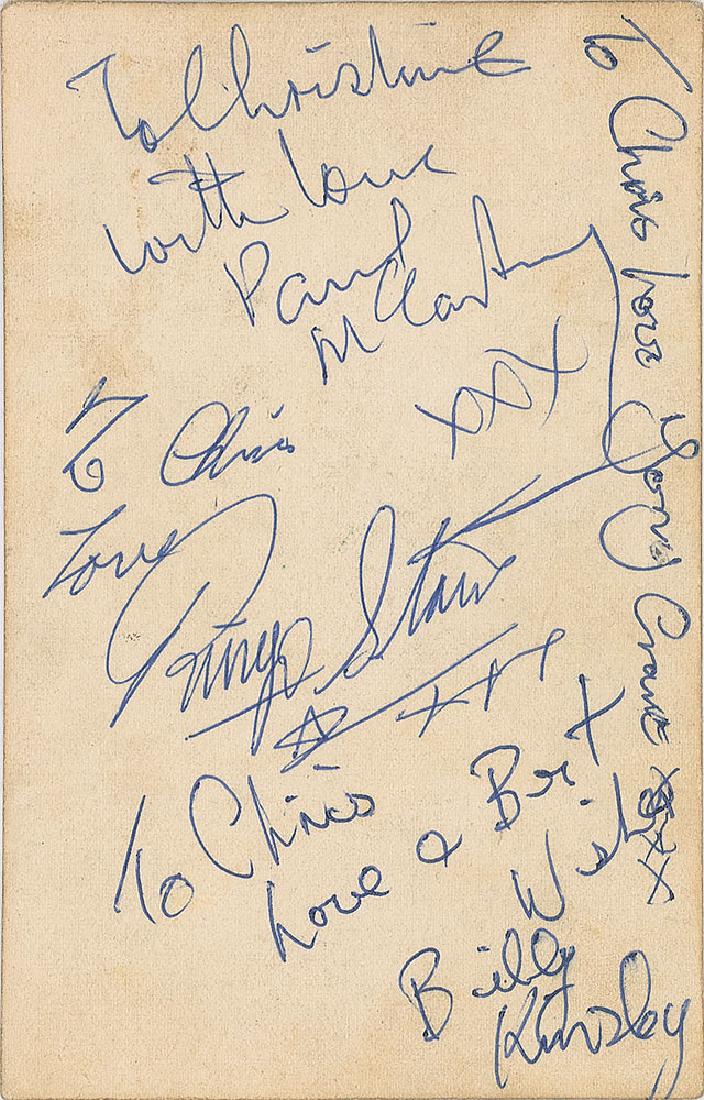 To Christine
with love
Paul
McCartney
XXX
To Chris
Love
Ringo Starr
XXX
To Chris
Love & Best
Wishes
Billy
Kinsley
To Chris love Tony Crane XXX